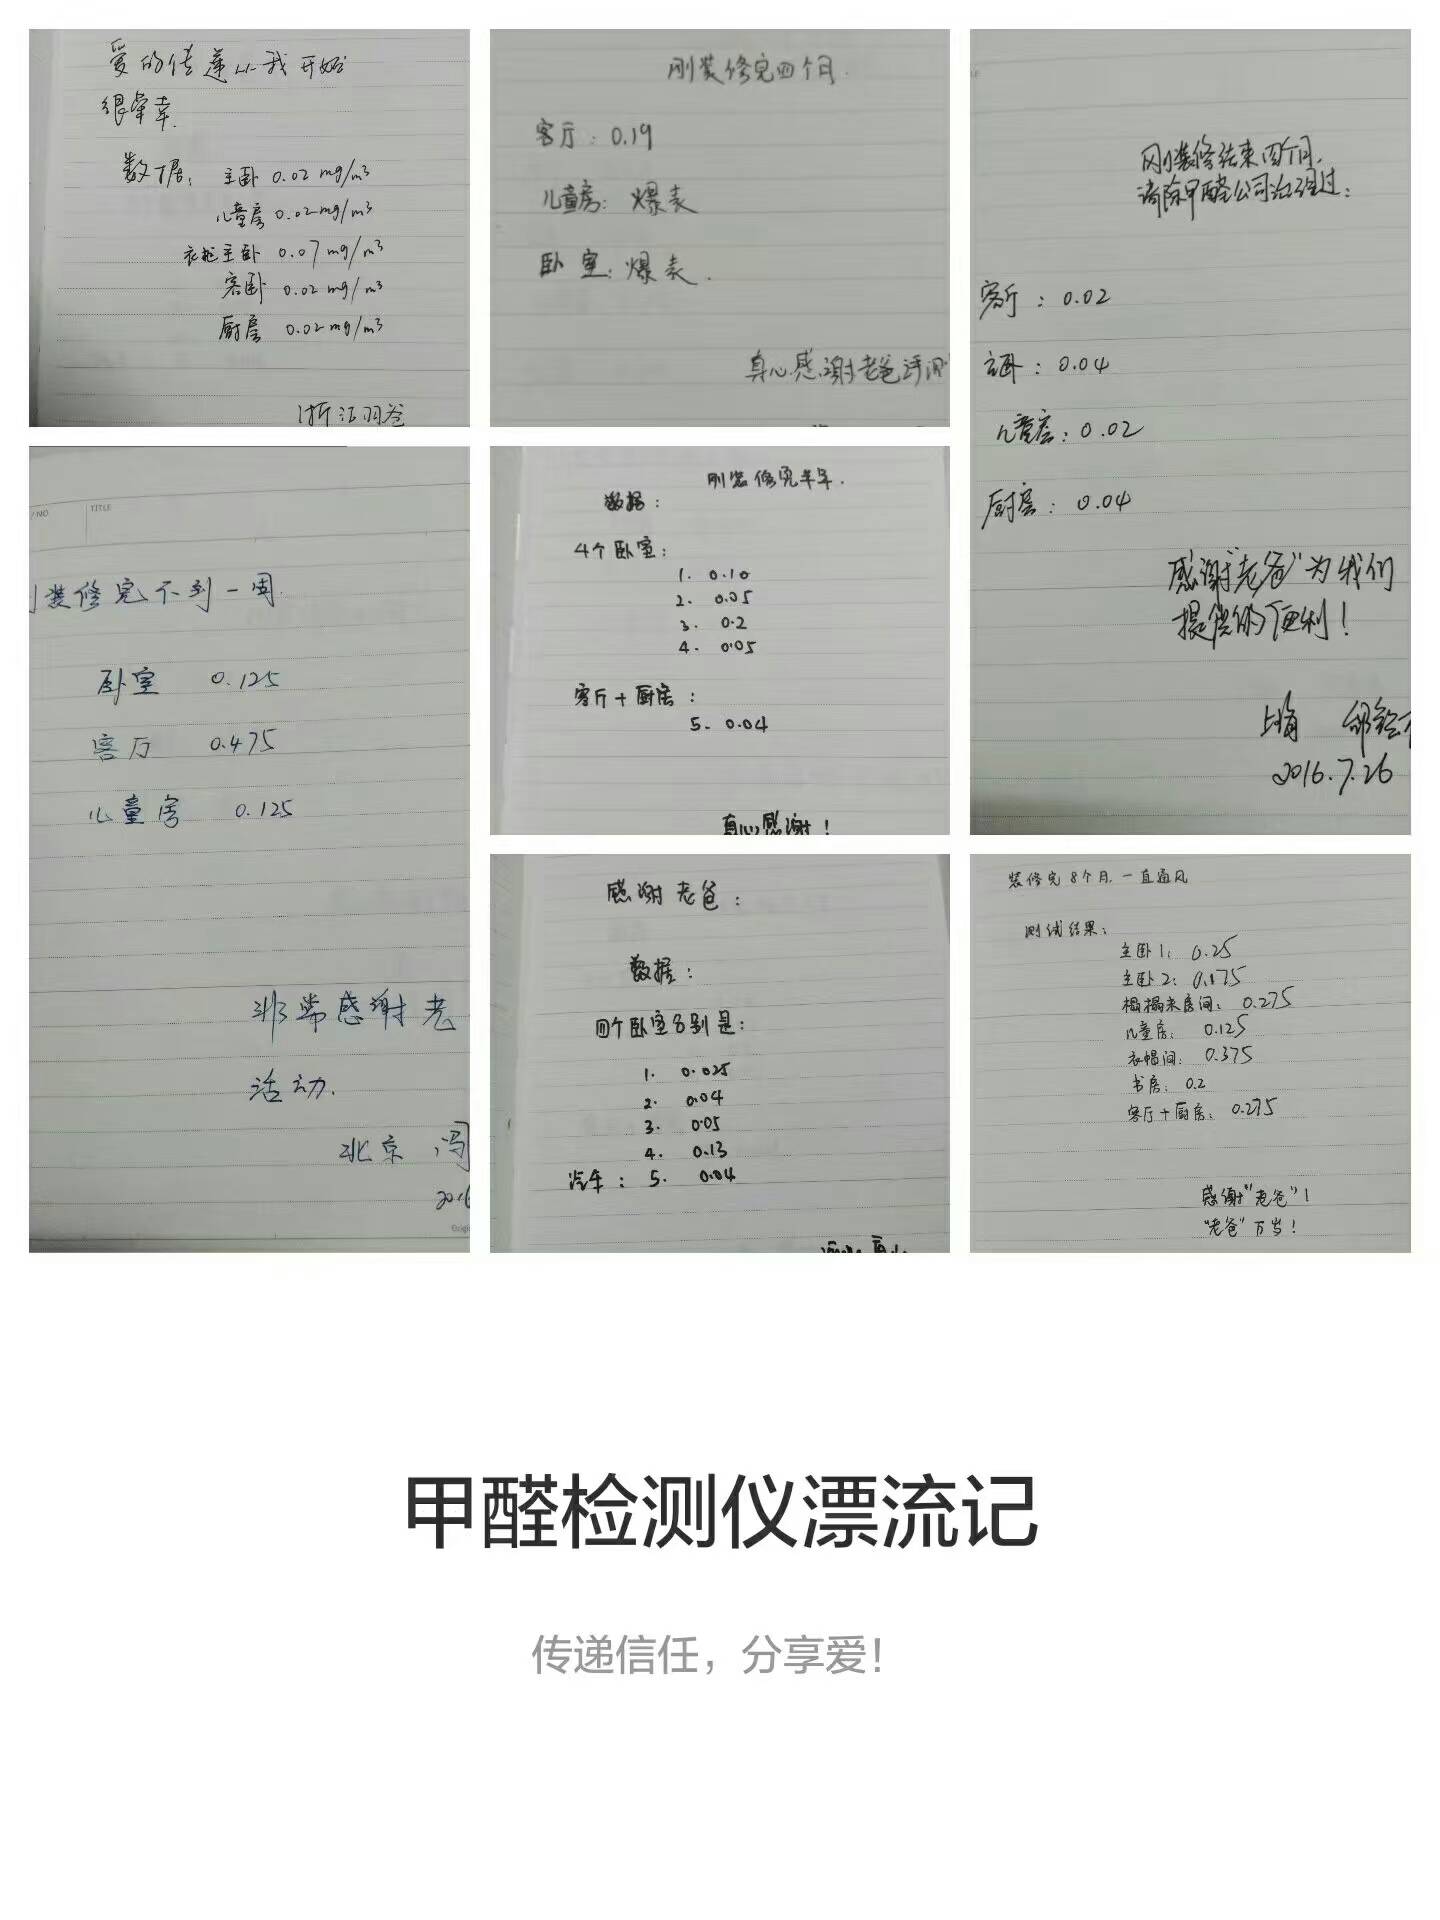 爱的传递从我开始
很荣幸
数据: 主卧 0.02 mg/m3
儿童房 0.02 mg/m3
衣柜主卧 0.07 mg/m3
客卧 0.02 mg/m3
厨房 0.02 mg/m3
浙江羽爸
刚装修完四个月.
客厅: 0.19
儿童房: 爆表
卧室: 爆表.
真心感谢老爸评测
刚装修结束四个月.
清除甲醛公司治理过:
客厅: 0.02
主卧: 0.04
儿童房: 0.02
厨房: 0.04
感谢"老爸"为我们
提供的便利!
上海
2016.7.26
/NO TITLE
装修完不到一周.
卧室 0.125
客厅 0.475
儿童房 0.125
非常感谢老
活动.
北京 冯
2016
刚装修完半年.
数据:
4个卧室:
1. 0.10
2. 0.05
3. 0.2
4. 0.05
客厅+厨房:
5. 0.04
真心感谢!
感谢老爸:
数据:
四个卧室分别是:
1. 0.025
2. 0.04
3. 0.05
4. 0.13
汽车: 5. 0.04
装修完8个月.一直通风
测试结果:
主卧1: 0.25
主卧2: 0.175
榻榻米房间: 0.275
儿童房: 0.125
衣帽间: 0.375
书房: 0.2
客厅+厨房: 0.275
感谢"老爸"!
"老爸"万岁!
甲醛检测仪漂流记
传递信任，分享爱！